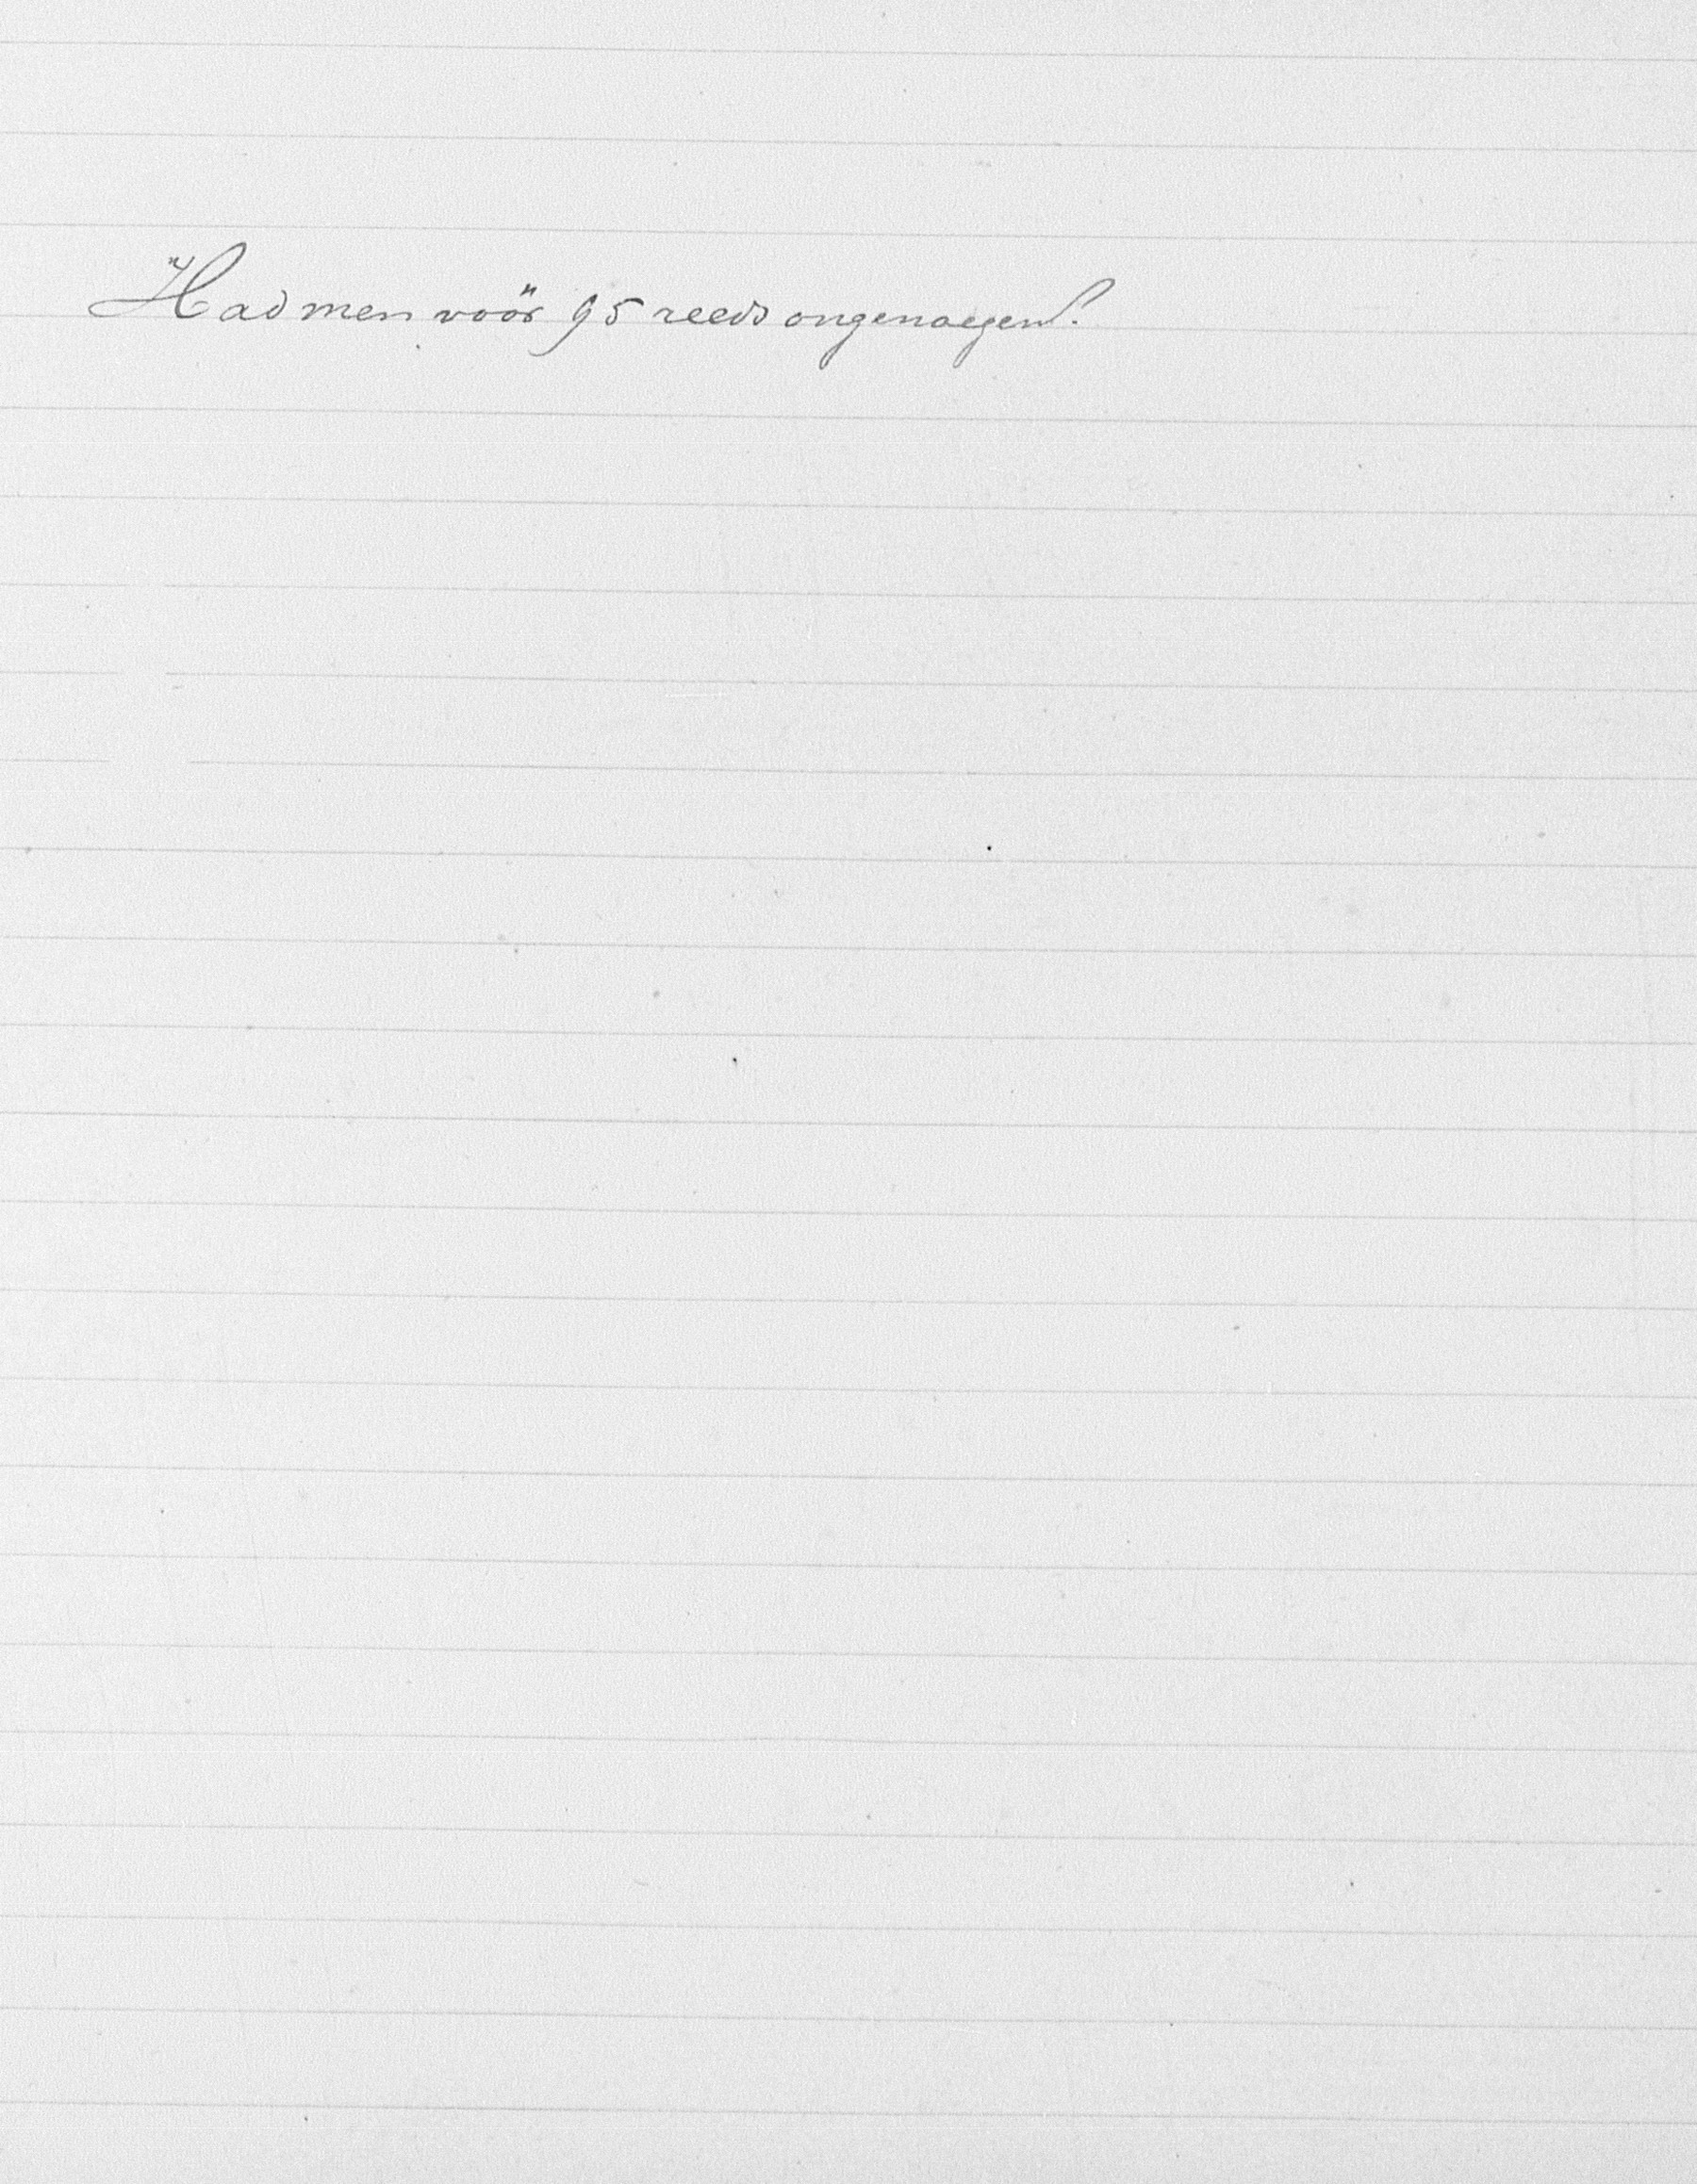 Had men voör 95 reeds ongenoegen?